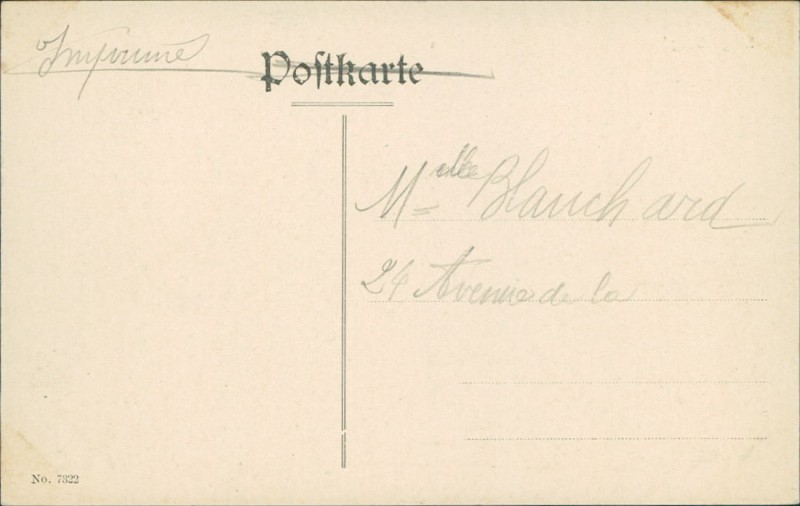 Imprimé
Postkarte
Mlle Blanchard
24 Avenue de la
No. 7822